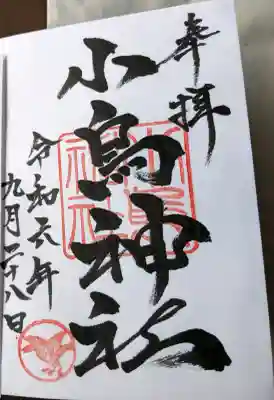 奉拝
小鳥神社
令和六年
九月二十八日